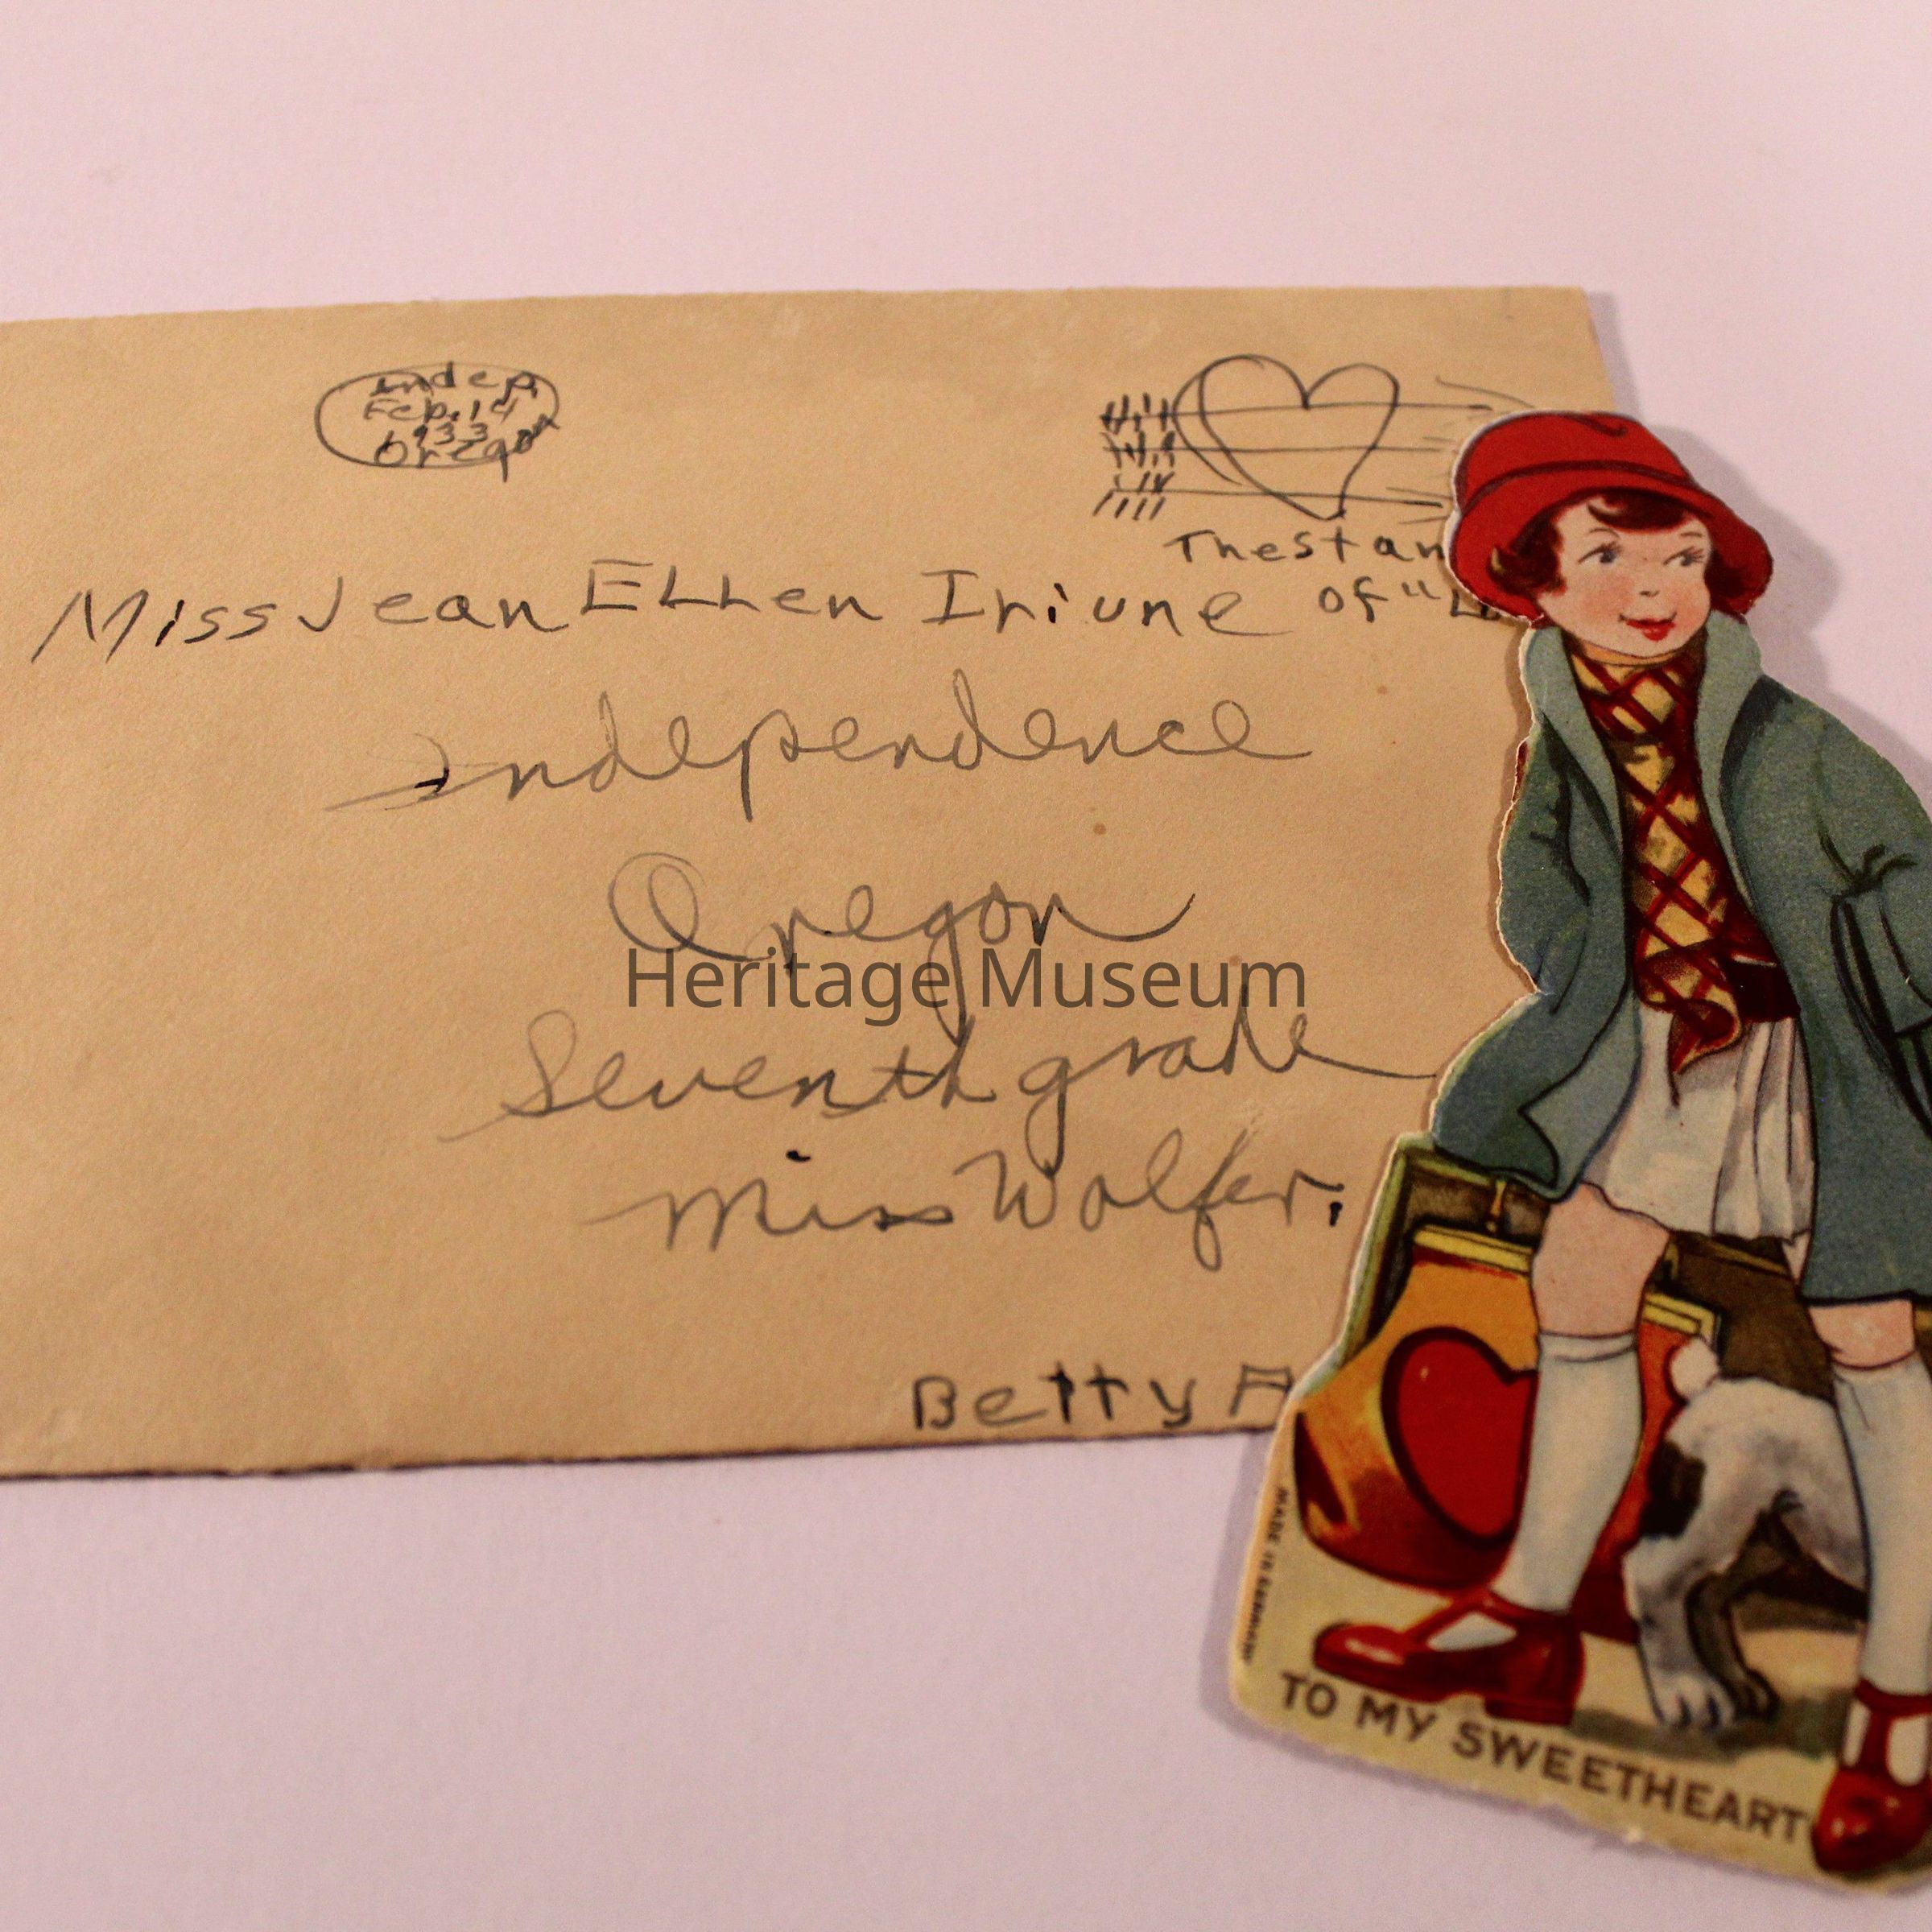 Indep.
Feb. 14
1933
Oregon
The stam
of "L
Miss Jean ELLen Iriune
Independence
Oregon
Heritage Museum
Seventh grade
Miss Wolfer.
Betty A
MADE IN GERMANY
TO MY SWEETHEART